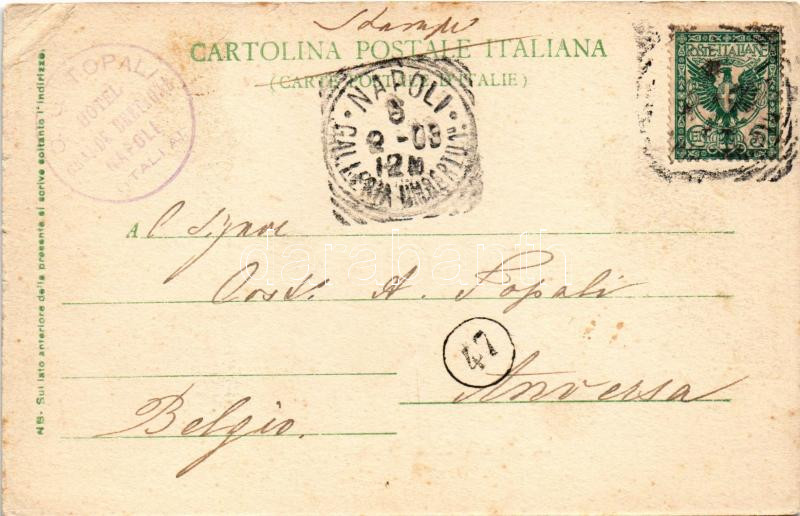 Stampe
CARTOLINA POSTALE ITALIANA
(CARTE POSTALE D'ITALIE)
TOPALI
HOTEL
NAPOLI
ITALIA
NAPOLI
8
2 - 03
12M
GALLERIA UMBERTO I°
POSTE ITALIANE
A l Signore
Cost. A. Topali
47
Anversa
Belgio.
NB - Sul lato anteriore della presente si scrive soltanto l'indirizzo.
darabanth